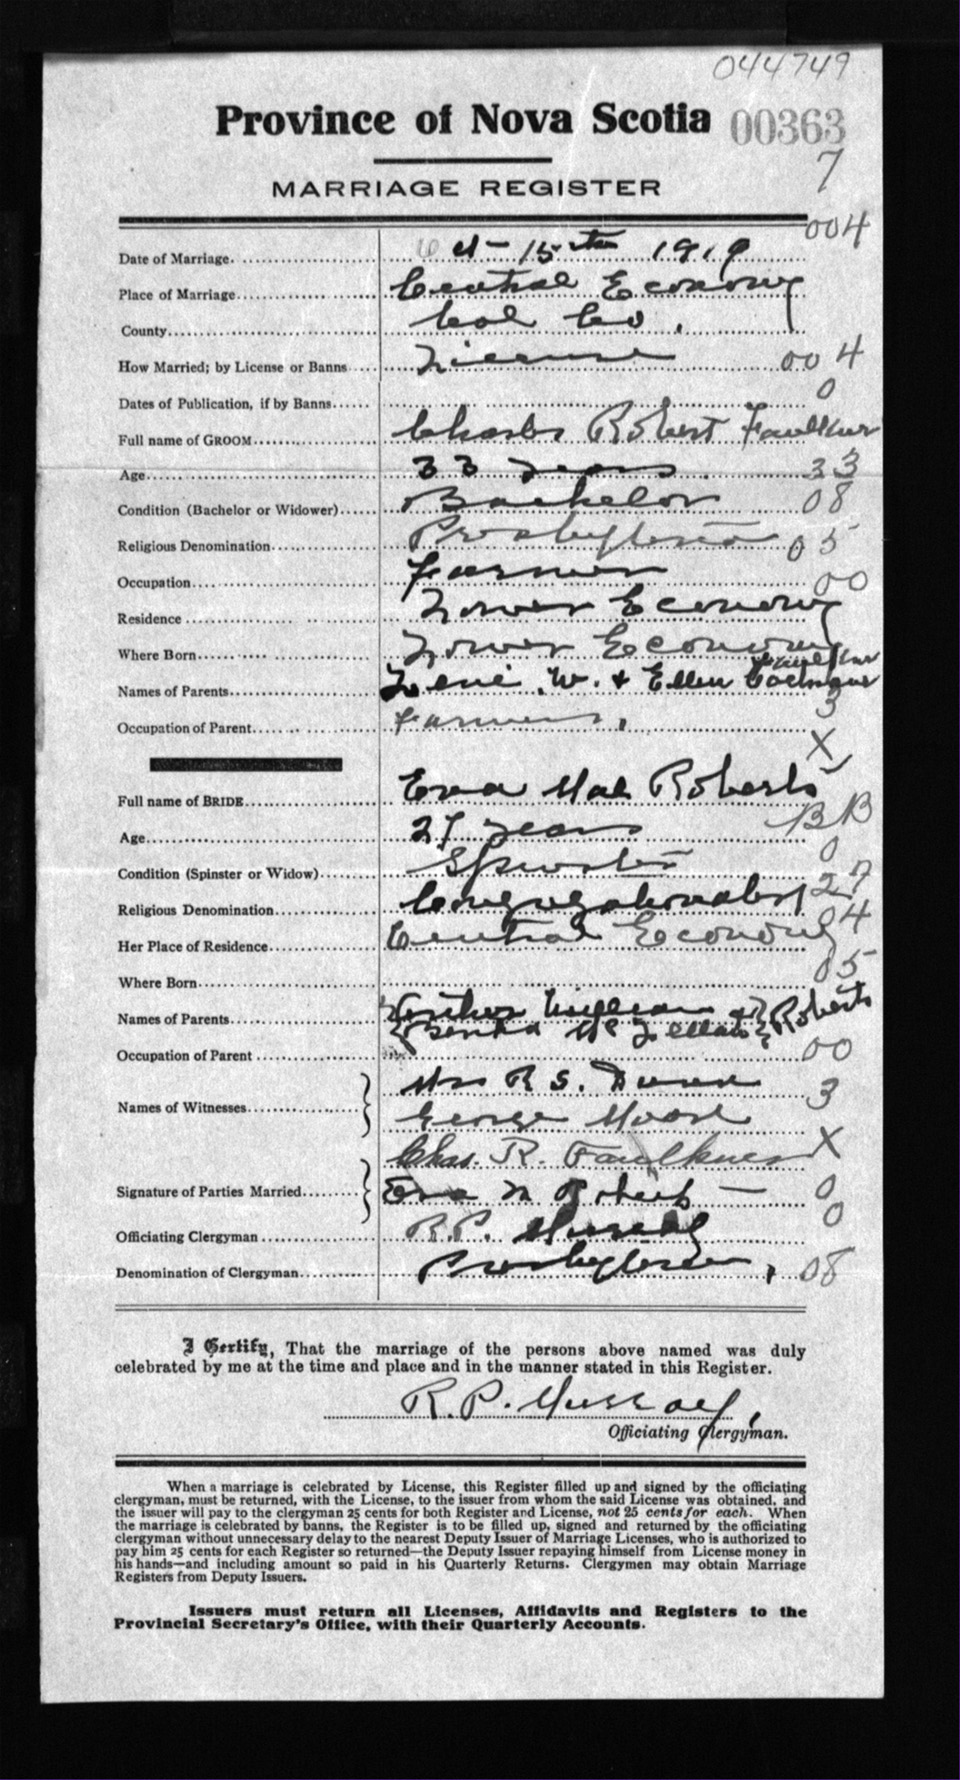 044749
Province of Nova Scotia 00363
7
MARRIAGE REGISTER
004
Date of Marriage. Oct 15th 1919
Place of Marriage Central Economy
County Col Co.
How Married; by License or Banns License 004
0
Dates of Publication, if by Banns
Full name of GROOM Charles Robert Faulkner
Age 33 years 33
Condition (Bachelor or Widower) Bachelor 08
Religious Denomination Presbyterian 05
Occupation Farmer 00
Residence Lower Economy
Where Born Lower Economy
Faulkner
Names of Parents W. & Ellen
3
Occupation of Parent Farmer.
X
Full name of BRIDE Eva Mae Roberts
BB
Age 27 years
0
Condition (Spinster or Widow) Spinster
27
Religious Denomination Congregationalist
04
Her Place of Residence Central Economy
05
Where Born
Names of Parents William & Roberts
Mc
Occupation of Parent 00
Names of Witnesses Mrs R S.
3
George Moore
X
Chas. R. Faulkner
Signature of Parties Married Eva M Roberts — 0
0
Officiating Clergyman R.P. Murray
Denomination of Clergyman Presbyterian, 08
I Certify, That the marriage of the persons above named was duly
celebrated by me at the time and place and in the manner stated in this Register.
R.P. Murray,
Officiating Clergyman.
When a marriage is celebrated by License, this Register filled up and signed by the officiating
clergyman, must be returned, with the License, to the issuer from whom the said License was obtained, and
the issuer will pay to the clergyman 25 cents for both Register and License, not 25 cents for each. When
the marriage is celebrated by banns, the Register is to be filled up, signed and returned by the officiating
clergyman without unnecessary delay to the nearest Deputy Issuer of Marriage Licenses, who is authorized to
pay him 25 cents for each Register so returned—the Deputy Issuer repaying himself from License money in
his hands—and including amount so paid in his Quarterly Returns. Clergymen may obtain Marriage
Registers from Deputy Issuers.
Issuers must return all Licenses, Affidavits and Registers to the
Provincial Secretary's Office, with their Quarterly Accounts.